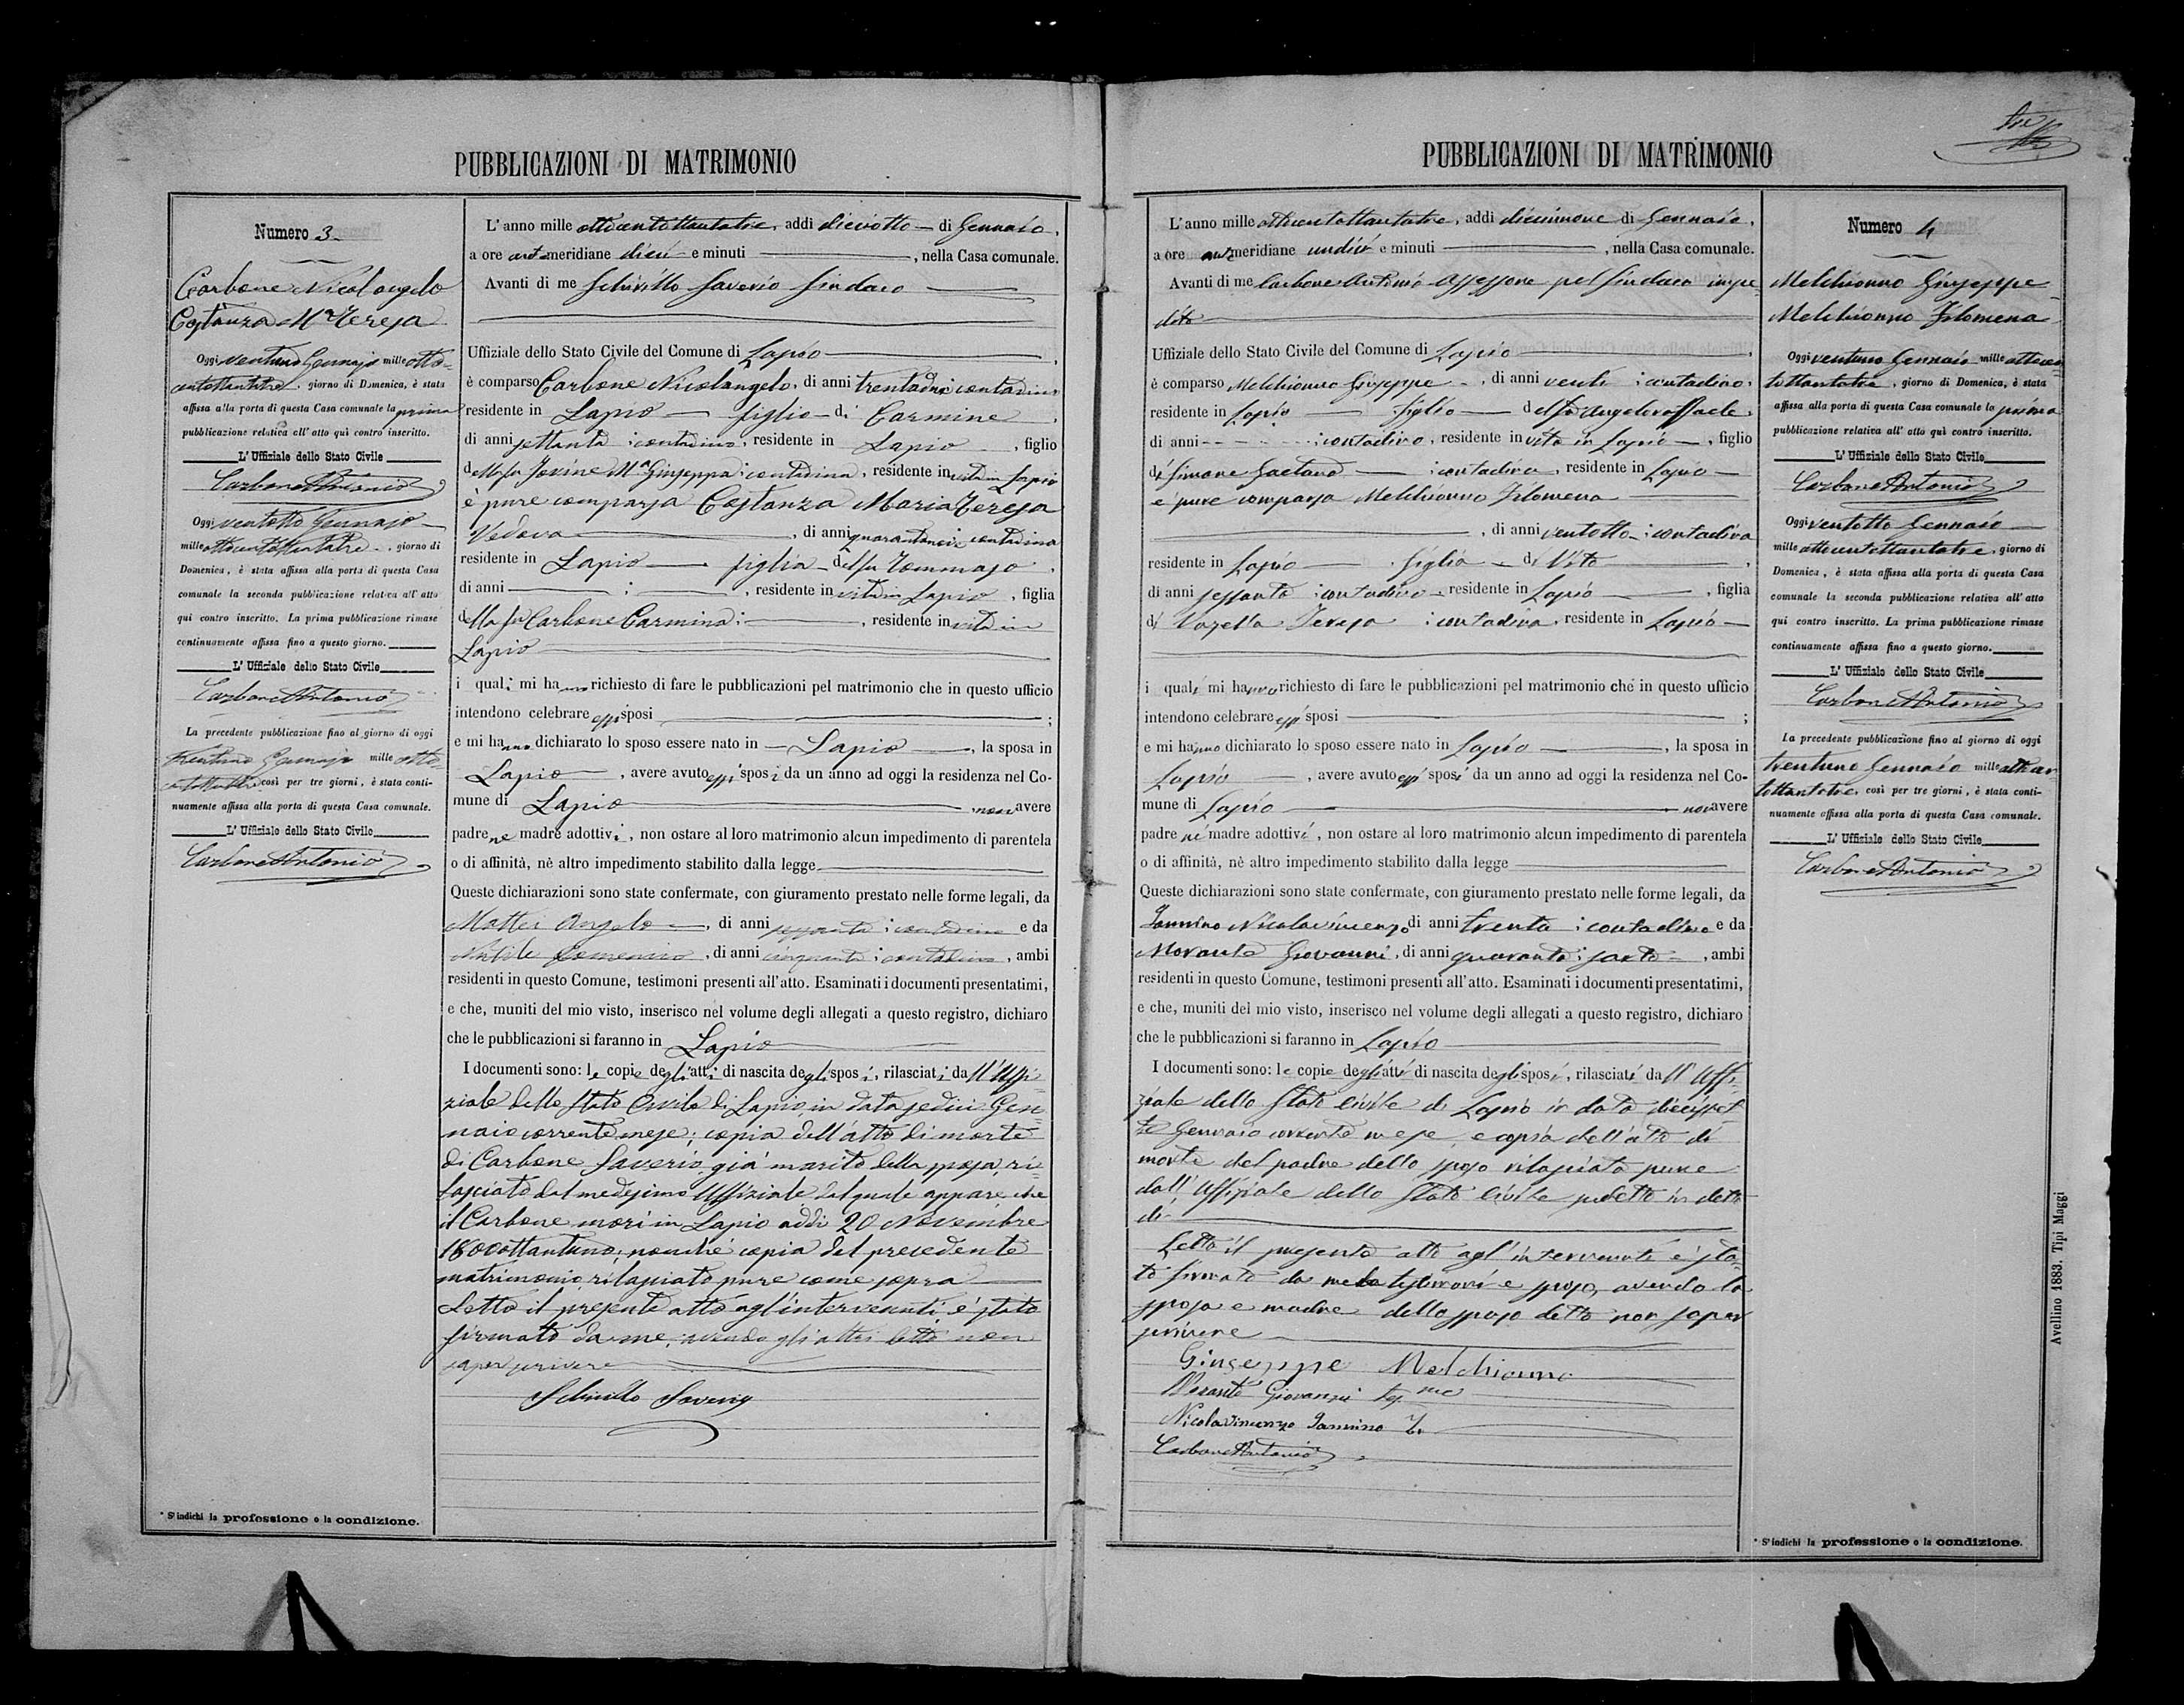 PUBBLICAZIONI DI MATRIMONIO
Numero 3
Carbone Nicolangelo
Costanza Ma Teresa
Oggi ventuno Gennajo mille otto-
centottantatre, giorno di Domenica, è stata
affissa alla porta di questa Casa comunale la prima
pubblicazione relativa all' atto quì contro inscritto.
L' Uffiziale dello Stato Civile
Carbone Antonio
Oggi ventotto Gennajo
mille ottocentottantatre, giorno di
Domenica, è stata affissa alla porta di questa Casa
comunale la seconda pubblicazione relativa all' atto
qui contro inscritto. La prima pubblicazione rimase
continuamente affissa fino a questo giorno.
L' Uffiziale dello Stato Civile
Carbone Antonio
La precedente pubblicazione fino al giorno di oggi
trentuno Gennajo mille otto-
centottantatre così per tre giorni, è stata conti-
nuamente affissa alla porta di questa Casa comunale.
L' Uffiziale dello Stato Civile
Carbone Antonio
* S' indichi la professione o la condizione.
L' anno mille ottocentottantatre, addì dieciotto di Gennaio,
a ore antimeridiane dieci e minuti , nella Casa comunale.
Avanti di me Schirillo Saverio Sindaco
Uffiziale dello Stato Civile del Comune di Lapio
è comparso Carbone Nicolangelo, di anni trentadue contadino
residente in Lapio figlio di Carmine
di anni settanta contadino, residente in Lapio, figlio
della fu Jovine Ma Giuseppa contadina, residente in vita in Lapio
è pure comparsa Costanza Maria Teresa
Vedova , di anni quarantasei contadina
residente in Lapio figlia del fu Tommaso
di anni , residente in vita in Lapio, figlia
della fu Carbone Carmina , residente in vita in
Lapio
i quali mi hanno richiesto di fare le pubblicazioni pel matrimonio che in questo ufficio
intendono celebrare essi sposi ;
e mi hanno dichiarato lo sposo essere nato in Lapio, la sposa in
Lapio, avere avuto essi sposi da un anno ad oggi la residenza nel Co-
mune di Lapio non avere
padre ne madre adottivi, non ostare al loro matrimonio alcun impedimento di parentela
o di affinità, nè altro impedimento stabilito dalla legge
Queste dichiarazioni sono state confermate, con giuramento prestato nelle forme legali, da
Mattei Angelo, di anni sessanta contadino e da
Domenico, di anni cinquanta contadino, ambi
residenti in questo Comune, testimoni presenti all' atto. Esaminati i documenti presentatimi,
e che, muniti del mio visto, inserisco nel volume degli allegati a questo registro, dichiaro
che le pubblicazioni si faranno in Lapio
I documenti sono: le copie degli atti di nascita degli sposi, rilasciati dall' Uffi-
ziale dello Stato Civile di Lapio in data sedici Gen-
naio corrente mese; copia dell' atto di morte
di Carbone Saverio già marito della sposa, ri-
lasciato dal medesimo Uffiziale dal quale appare che
il Carbone morì in Lapio addì 20 Novembre
1800ottantuno; nonchè copia del precedente
matrimonio rilasciato pure come sopra
Letto il presente atto agl' intervenuti è stato
firmato da me; avendo gli altri detto non
saper scrivere
Schirillo Saverio
PUBBLICAZIONI DI MATRIMONIO
tre
L' anno mille ottocentottantatre, addì diecinnove di Gennaio,
a ore antimeridiane undici e minuti , nella Casa comunale.
Avanti di me Carbone Antonio Assessore pel Sindaco impe-
dito
Uffiziale dello Stato Civile del Comune di Lapio
è comparso Melchionno Giuseppe, di anni venti contadino
residente in Lapio figlio del fu Angeloraffaele
di anni contadino, residente in vita in Lapio, figlio
di Simone Gaetana contadina, residente in Lapio
e pure comparsa Melchionno Filomena
, di anni ventotto contadina
residente in Lapio figlia di Vito
di anni sessanta contadino residente in Lapio, figlia
di Teresa contadina, residente in Lapio
i quali mi hanno richiesto di fare le pubblicazioni pel matrimonio che in questo ufficio
intendono celebrare essi sposi ;
e mi hanno dichiarato lo sposo essere nato in Lapio, la sposa in
Lapio, avere avuto essi sposi da un anno ad oggi la residenza nel Co-
mune di Lapio non avere
padre nè madre adottivi, non ostare al loro matrimonio alcun impedimento di parentela
o di affinità, nè altro impedimento stabilito dalla legge
Queste dichiarazioni sono state confermate, con giuramento prestato nelle forme legali, da
Iannino Nicolavincenzo di anni trenta contadino e da
Morante Giovanni, di anni quaranta sarto, ambi
residenti in questo Comune, testimoni presenti all' atto. Esaminati i documenti presentatimi,
e che, muniti del mio visto, inserisco nel volume degli allegati a questo registro, dichiaro
che le pubblicazioni si faranno in Lapio
I documenti sono: le copie degli atti di nascita degli sposi, rilasciati dall' Uffi-
ziale dello Stato Civile di Lapio in data diciasset-
te Gennaio corrente mese, e copia dell' atto di
morte del padre dello sposo rilasciata pure
dall' Uffiziale dello Stato Civile predetto in detto
dì
Letto il presente atto agl' intervenuti è sta-
to firmato da me testimoni e sposo, avendo la
sposa e madre dello sposo detto non saper
scrivere
Giuseppe Melchionno
Morante Giovanni tes.ne
Nicolavincenzo Iannino T.
Carbone Antonio
Numero 4
Melchionno Giuseppe
Melchionno Filomena
Oggi ventuno Gennaio mille ottocen-
tottantatre, giorno di Domenica, è stata
affissa alla porta di questa Casa comunale la prima
pubblicazione relativa all' atto quì contro inscritto.
L' Uffiziale dello Stato Civile
Carbone Antonio
Oggi ventotto Gennaio
mille ottocentottantatre, giorno di
Domenica, è stata affissa alla porta di questa Casa
comunale la seconda pubblicazione relativa all' atto
qui contro inscritto. La prima pubblicazione rimase
continuamente affissa fino a questo giorno.
L' Uffiziale dello Stato Civile
Carbone Antonio
La precedente pubblicazione fino al giorno di oggi
trentuno Gennaio mille ottocen-
tottantatre, così per tre giorni, è stata conti-
nuamente affissa alla porta di questa Casa comunale.
L' Uffiziale dello Stato Civile
Carbone Antonio
* S' indichi la professione o la condizione.
Avellino 1883. Tipi Maggi